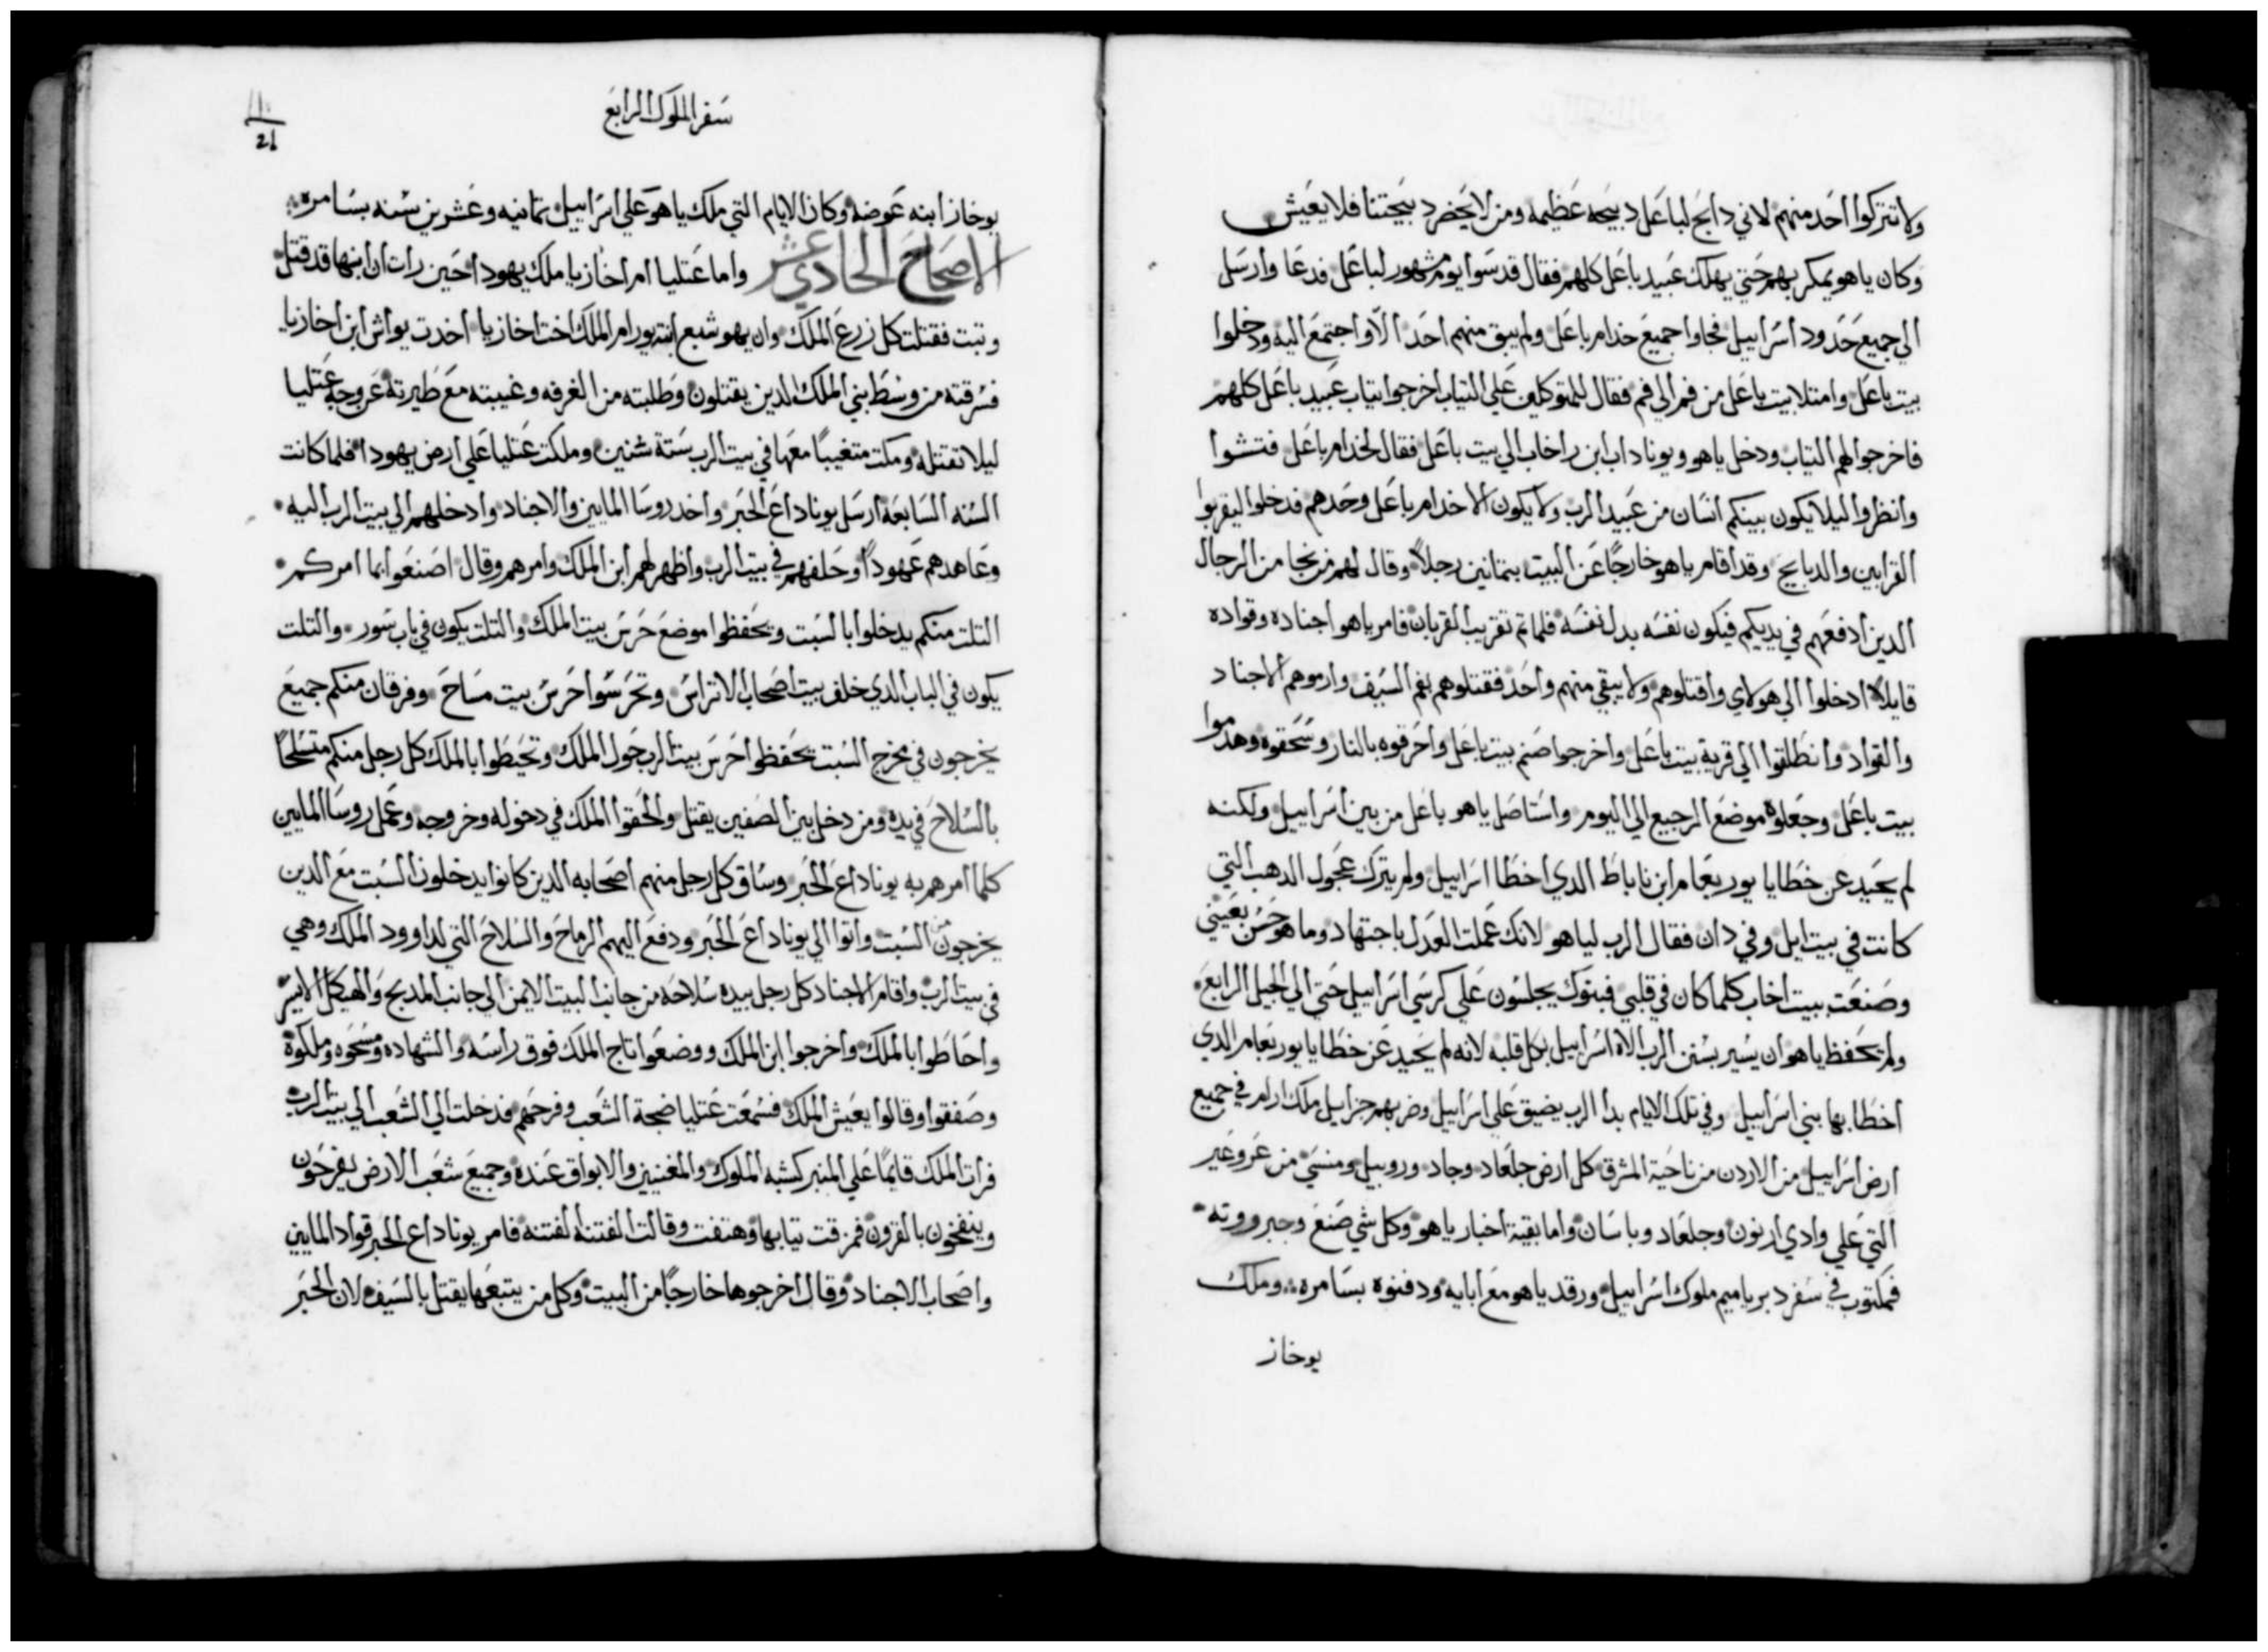 ولا تتركوا احد منهم لاني دابح لباعل دبيحه عظيمه ومن لا يحضر دبيحتنا فلا يعيش
وكان ياهو يمكر بهم حتي يهلك عبيد باعل كلهم فقال قدسوا يوم مشهور لباعل فدعا وارسل
الي جميع حدود اسراييل فجاوا جميع خدام باعل ولم يبق منهم احدا الا واجتمع اليه ودخلوا
بيت باعل وامتلا بيت باعل من فم الي فم فقال للمتوكلين علي التياب اخرجوا تياب عبيد باعل كلهم
فاخرجوا لهم التياب ودخل ياهو ويوناداب ابن راخاب الي بيت باعل فقال لخدام باعل فتشوا
وانظروا ليلا يكون بينكم انسان من عبيد الرب ولا يكون الا خدام باعل وحدهم فدخلوا ليقربوا
القرابين والدبايح وقد اقام ياهو خارجًا عن البيت بتمانين رجلاً وقال لهم من نجا من الرجال
الدين ادفعهم في يديكم فيكون نفسه بدل نفسه فلما تم تقريب القربان فامر ياهو اجناده وقواده
قايلاً ادخلوا الي هولاي واقتلوهم ولا يبقي منهم واحد فقتلوهم بفم السيف وارموهم الاجناد
والقواد وانطلقوا الي قرية بيت باعل واخرجوا صنم بيت باعل واحرقوه بالنار وسحقوه وهدموا
بيت باعل وجعلوه موضع الرجيع الي اليوم واستاصل ياهو باعل من بين اسراييل ولكنه
لم يحيد عن خطايا يوربعام ابن ناباط الدي اخطا اسراييل ولم يترك عجول الدهب التي
كانت في بيت ايل وفي دان فقال الرب لياهو لانك عملت العدل باجتهاد وما هو حسن بعيني
وصنعت ببيت اخاب كلما كان في قلبي فبنوك يجلسون علي كرسي اسراييل حتي الي الجيل الرابع
ولم تحفظ ياهو ان يسير بسنن الرب الاه اسراييل بكل قلبه لانه لم يحيد عن خطايا يوربعام الدي
اخطا بها بني اسراييل وفي تلك الايام بدا الرب يضيق علي اسراييل وضربهم حزاييل ملك ارام في جميع
ارض اسراييل من الاردن من ناحية المشرق كل ارض جلعاد وجاد وروبيل ومنسي من عروعير
التي علي وادي ارنون وجلعاد وباسان واما بقية اخبار ياهو وكل شي صنع وجبروته
فمكتوب في سفر دبرياميم ملوك اسراييل ورقد ياهو مع ابايه ودفنوه بسامره وملك
يوخاز
سفر الملوك الرابع
يوخاز ابنه عوضه وكان الايام التي ملك ياهو علي اسراييل تمانيه وعشرين سنه بسامره
الاصحاح الحادي عشر واما عتليا ام اخازيا ملك يهودا حين رات ان ابنها قد قتل
وتبت فقتلت كل زرع الملك وان يهوشبع ابنة يورام الملك اخت اخازيا اخدت يواش ابن اخازيا
فسرقته من وسط بني الملك الدين يقتلون وطلبته من الغرفه وغيبته مع ظيرته عن وجه عتليا
ليلا تقتله ومكت متغيبًا معها في بيت الرب ستة سنين وملكت عتليا علي ارض يهودا فلما كانت
السنه السابعه ارسل يوناداع الحبر واخد روسا المايين والاجناد وادخلهم الي بيت الرب اليه
وعاهدهم عهودًا وحلفهم في بيت الرب واظهر لهم ابن الملك وامرهم وقال اصنعوا بما امركم
التلت منكم يدخلوا بالسبت ويحفظوا موضع حرس بيت الملك والتلت يكون في باب سور والتلت
يكون في الباب الدي خلف بيت اصحاب الاتراس وتحرسوا حرس بيت مساح وفرقان منكم جميع
يخرجون في مخرج السبت يحفظوا حرس بيت الرب حول الملك وتحيطوا بالملك كل رجل منكم متسلحًا
بالسلاح في يده ومن دخل بين الصفين يقتل ولحقوا الملك في دخوله وخروجه وعمل روسا المايين
كلما امرهم به يوناداع الحبر وساق كل رجل منهم اصحابه الدين كانوا يدخلون السبت مع الدين
يخرجون من السبت واتوا الي يوناداع الحبر ودفع اليهم الرماح والسلاح التي لداوود الملك وهي
في بيت الرب واقام الاجناد كل رجل بيده سلاحه من جانب البيت الايمن الي جانب المدبح والهيكل الايسر
واحاطوا بالملك واخرجوا ابن الملك ووضعوا تاج الملك فوق راسه والشهاده ومسحوه وملكوه
وصفقوا وقالوا يعيش الملك فسمعت عتليا ضجة الشعب وفرحهم فدخلت الي الشعب الي بيت الرب
فرات الملك قايمًا علي المنبر كشبه الملوك والمغنيين والابواق عنده وجميع شعب الارض يفرحون
وينفخون بالقرون فمزقت تيابها وهتفت وقالت الفتنه الفتنه فامر يوناداع الحبر قواد المايين
واصحاب الاجناد وقال اخرجوها خارجًا من البيت وكل من يتبعها يقتل بالسيف لان الحبر